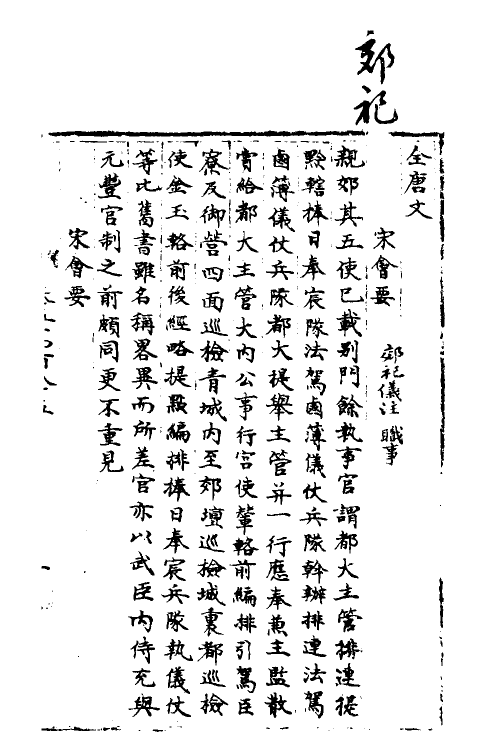 郊祀
全唐文
宋會要 郊祀儀注 職事
親郊其五使已載别門餘執事官謂都大主管排連提
點轄捧日奉宸隊法駕鹵簿儀仗兵隊幹辦排連法駕
鹵簿儀仗兵隊都大提舉主管并一行應奉兼主監散
賞給都大主管大内公事行宫使輦輅前編排引駕臣
寮及御營四面巡檢青城内至郊壇巡檢城裏都巡檢
使金玉輅前後經略提點編排捧日奉宸兵隊執儀仗
等比舊書雖名稱畧異而所差官亦以武臣内侍充與
元豐官制之前頗同更不重見
宋會要